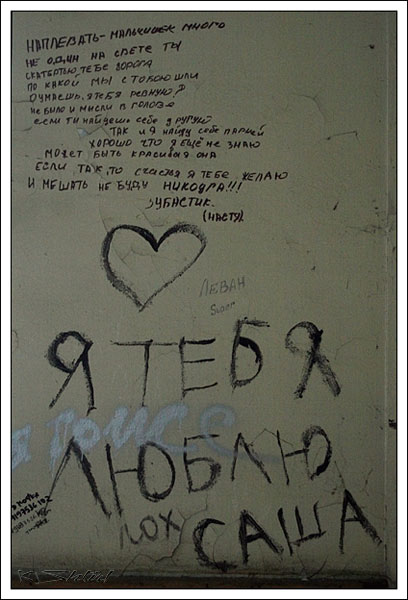 НАПЛЕВАТЬ - МАЛЬЧИШЕК МНОГО
НЕ ОДИН НА СВЕТЕ ТЫ
СКАТЕРТЬЮ ТЕБЕ ДОРОГА
ПО КАКОЙ МЫ С ТОБОЮ ШЛИ
ДУМАЕШЬ, Я ТЕБЯ РЕВНУЮ?
НЕ БЫЛО И МЫСЛИ В ГОЛОВЕ
ЕСЛИ ТЫ НАЙДЕШЬ СЕБЕ ДРУГУЮ
ТАК И Я НАЙДУ СЕБЕ ПАРНЕЙ
ХОРОШО ЧТО Я ЕЩЁ НЕ ЗНАЮ
МОЖЕТ БЫТЬ КРАСИВАЯ ОНА
ЕСЛИ ТАК, ТО СЧАСТЬЯ Я ТЕБЕ ЖЕЛАЮ
И МЕШАТЬ НЕ БУДУ НИКОГДА!!!
ЗУБАСТИК.
(НАСТЯ)
ЛЕВАН
Super
Я ТЕБЯ
ЛЮБЛЮ
ЛОХ
САША